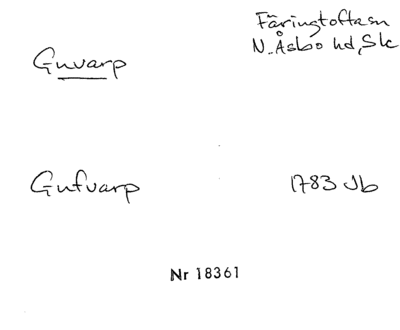 Guvarp
Färingtofta sn
N. Åsbo hd, Sk
Gufvarp
1783 Jb
Nr 18361